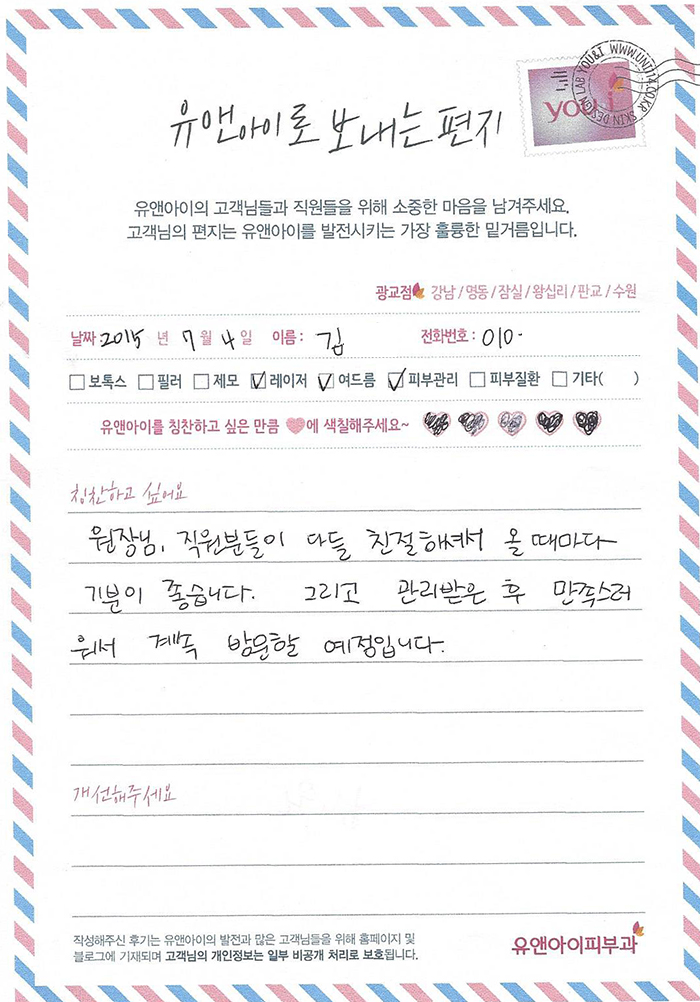 유앤아이로 보내는 편지
you i
SKIN DESIGN LAB YOU&I WWW.UNI114.CO.KR
유앤아이의 고객님들과 직원들을 위해 소중한 마음을 남겨주세요.
고객님의 편지는 유앤아이를 발전시키는 가장 훌륭한 밑거름입니다.
광교점 강남/명동/잠실/왕십리/판교/수원
날짜: 2015 년 7 월 4 일 이름: 김 전화번호: 010-
보톡스 필러 제모 레이저 여드름 피부관리 피부질환 기타( )
유앤아이를 칭찬하고 싶은 만큼 에 색칠해주세요~
칭찬하고 싶어요
원장님, 직원분들이 다들 친절하셔서 올 때마다
기분이 좋습니다. 그리고 관리받은 후 만족스러
워서 계속 방문할 예정입니다.
개선해주세요
작성해주신 후기는 유앤아이의 발전과 많은 고객님들을 위해 홈페이지 및
블로그에 기재되며 고객님의 개인정보는 일부 비공개 처리로 보호됩니다.
유앤아이피부과